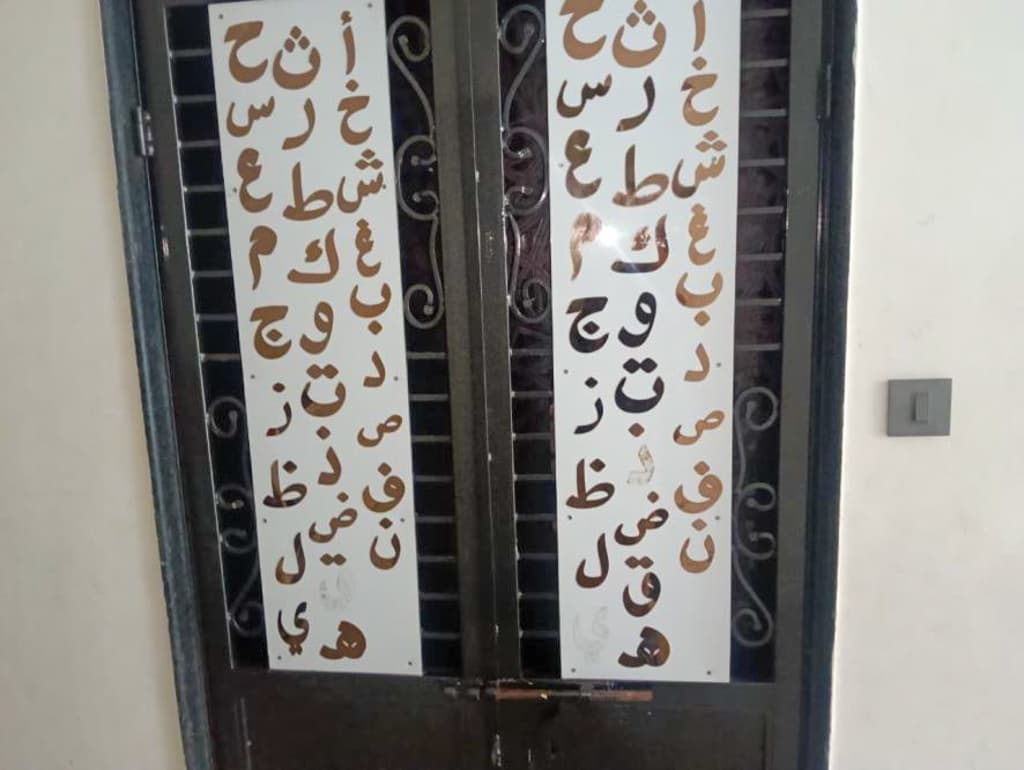 أ ث ح
خ ر س
ش ط ع
غ ك م
ب و ج
د ت ز
ص ذ ظ
ف ض ل
ن ق ي
ه
أ ث ح
خ ر س
ش ط ع
غ ك م
ب و ج
د ت ز
ص ذ ظ
ف ض ل
ن ق ي
ه